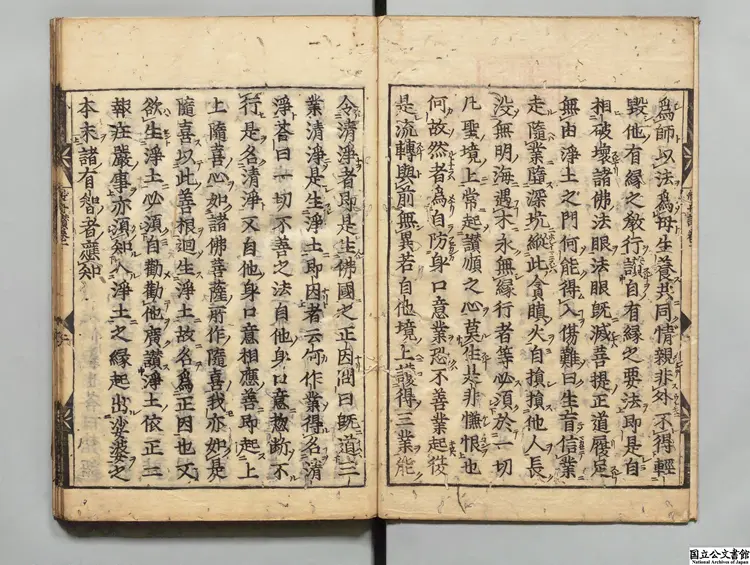 為師以法為母生養共同情親非外不得輕
毀他有縁之教行讃自有縁之要法即是自
相破壊諸佛法眼法眼既滅菩提正道履足
無由淨土之門何能得入傷難曰生盲信業
走隨業墮深坑縱此貪瞋火自損損他人長
没無明海遇木永無縁行者等必須於一切
凡聖境上常起讃順之心莫生是非慊恨也
何故然者為自防身口意業恐不善業起從
是流轉與前無異若自他境上護得三業能
令清淨者即是生佛國之正因問曰既道三
業清淨是生淨土即因者云何作業得名清
淨荅曰一切不善之法自他身口意揔斷不
行是名清淨又自他身口意相應善即起上
上隨喜心如諸佛菩薩所作隨喜我亦如是
隨喜以此善根迴生淨土故名為正因也又
欲生淨土必須自勸勸他廣讃淨土依正二
報荘嚴事亦須知入淨土之縁起出娑婆之
本末諸有智者應知
般舟讃巻
国立公文書館
National Archives of Japan